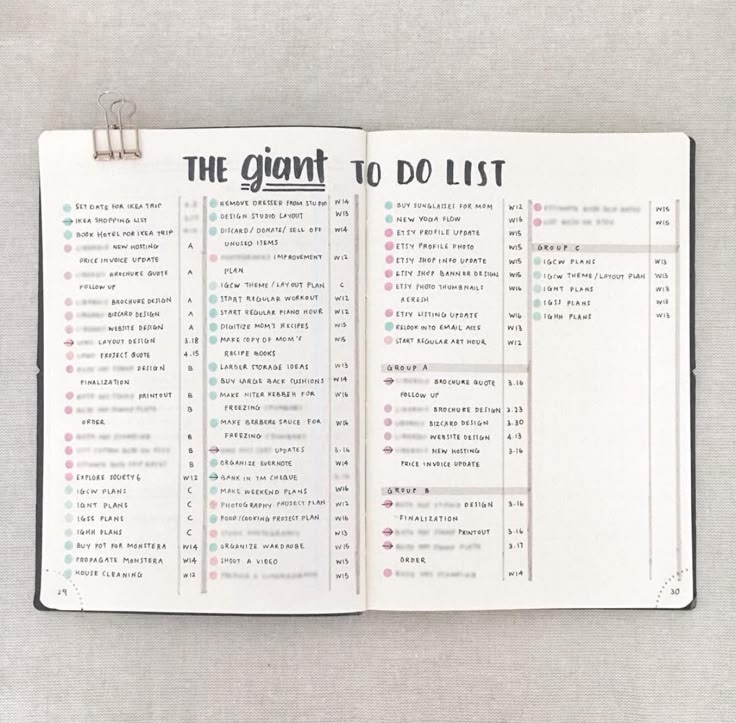 THE giant TO DO LIST
SET DATE FOR IKEA TRIP
IKEA SHOPPING LIST
BOOK HOTEL FOR IKEA TRIP
NEW HOSTING A
PRICE INVOICE UPDATE
BROCHURE QUOTE A
FOLLOW UP
BROCHURE DESIGN A
BIZCARD DESIGN A
WEBSITE DESIGN A
LAYOUT DESIGN 3.18
PROJECT QUOTE 4.15
DESIGN B
FINALIZATION
PRINTOUT B
B
ORDER
B
B
B
EXPLORE SOCIETY6 W12
IGCW PLANS C
IGNT PLANS C
IGSS PLANS C
IGHH PLANS C
BUY POT FOR MONSTERA W14
PROPAGATE MONSTERA W14
HOUSE CLEANING W12
29
REMOVE DRESSER FROM STUDIO W14
DESIGN STUDIO LAYOUT W13
DISCARD/DONATE/SELL OFF W14
UNUSED ITEMS
IMPROVEMENT W12
PLAN
IGCW THEME/LAYOUT PLAN C
START REGULAR WORKOUT W12
START REGULAR PIANO HOUR W12
DIGITIZE MOM'S RECIPES W15
MAKE COPY OF MOM'S W15
RECIPE BOOKS
LARDER STORAGE IDEAS W13
BUY LARGE BACK CUSHIONS W14
MAKE NITER KEBBEH FOR W16
FREEZING
MAKE BERBERE SAUCE FOR W16
FREEZING
UPDATES 3.16
ORGANIZE EVERNOTE W14
BANK IN TM CHEQUE
MAKE WEEKEND PLANS W16
PHOTOGRAPHY PROJECT PLAN W12
FOOD/COOKING PROJECT PLAN W16
W13
ORGANIZE WARDROBE W15
SHOOT A VIDEO W13
W15
BUY SUNGLASSES FOR MOM W12
NEW YOGA FLOW W16
ETSY PROFILE UPDATE W15
ETSY PROFILE PHOTO W15
ETSY SHOP INFO UPDATE W15
ETSY SHOP BANNER DESIGN W16
ETSY PHOTO THUMBNAILS W16
RERESH
ETSY LISTING UPDATE W16
RELOOK INTO EMAIL ACCS W13
START REGULAR ART HOUR W12
GROUP A
BROCHURE QUOTE 3.16
FOLLOW UP
BROCHURE DESIGN 3.23
BIZCARD DESIGN 3.30
WEBSITE DESIGN 4.13
NEW HOSTING 3.16
PRICE INVOICE UPDATE
GROUP B
DESIGN 3.16
FINALIZATION
PRINTOUT 3.16
3.17
ORDER
W14
W15
W15
GROUP C
IGCW PLANS W13
IGCW THEME/LAYOUT PLAN W13
IGNT PLANS W13
IGSS PLANS W13
IGHH PLANS W13
30